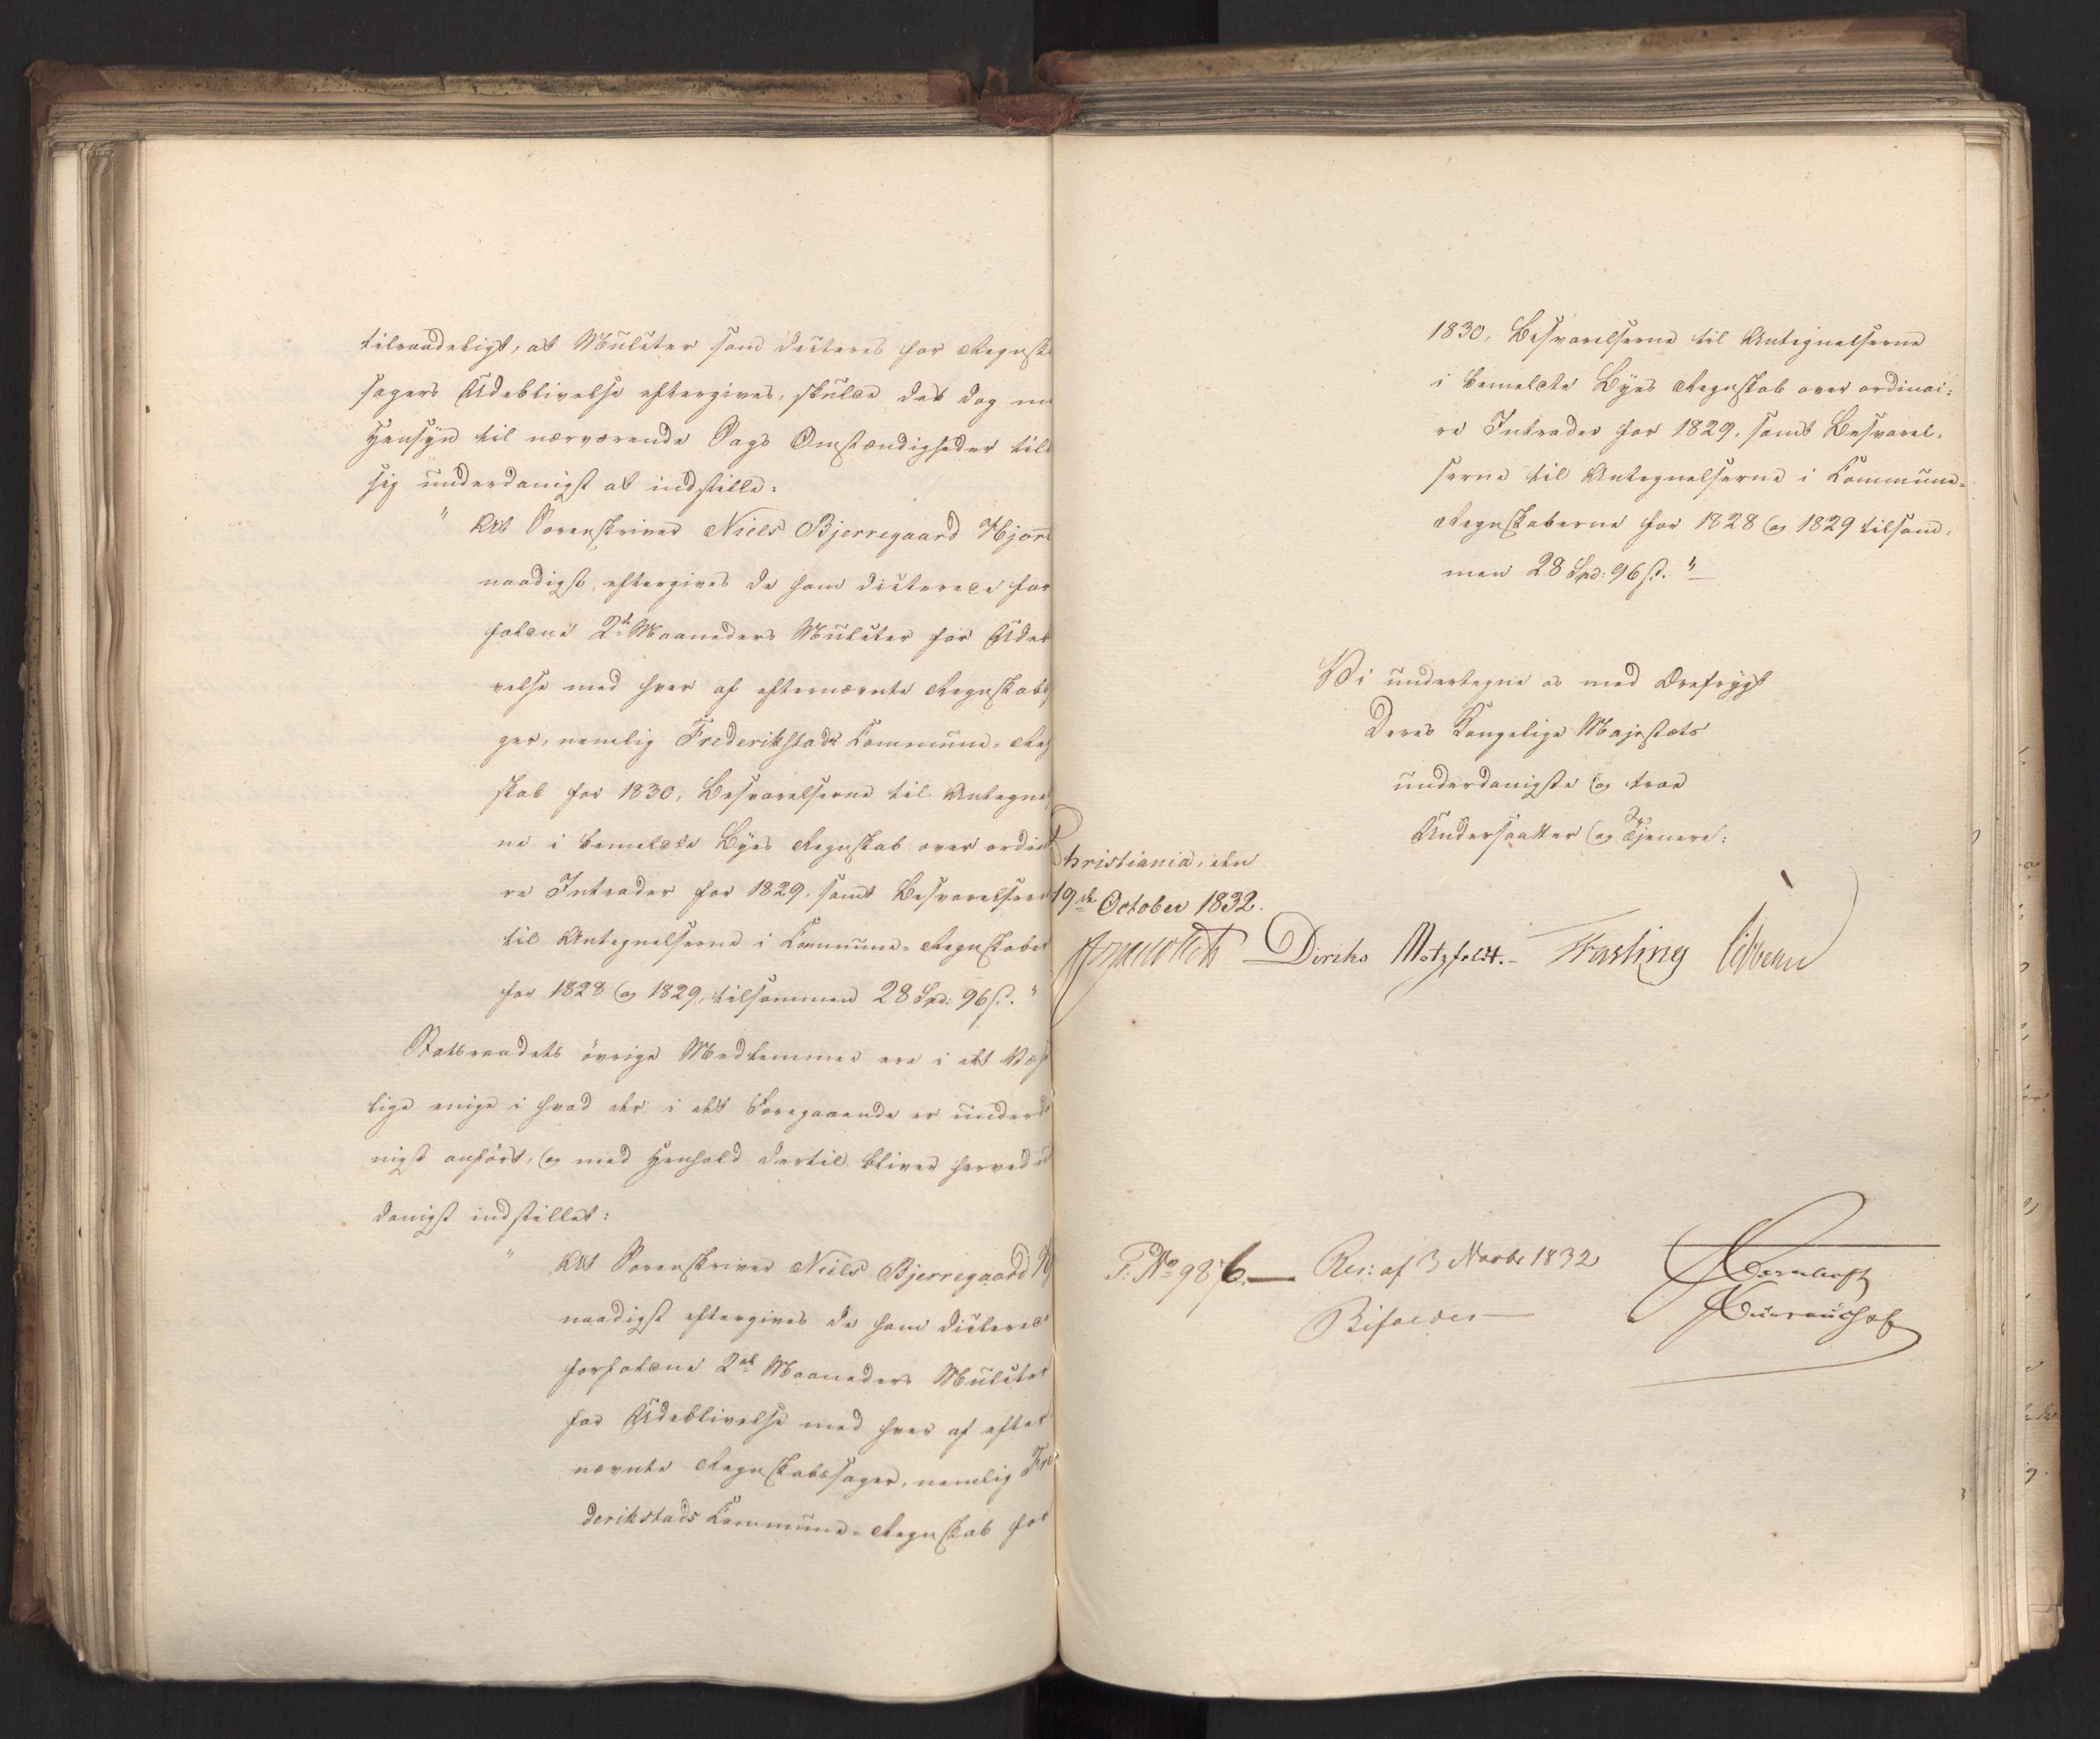 tilraadeligt, at Mulcter som dicteres for Regnskabs
sagers Udeblivelse eftergives, skulde det dog med
Hensyn til nærværende Sags Omstændigheder tillade
sig underdanigst at indstille:
" At Sorenskriver Niels Bjerregaard Hjort
naadigst eftergives de ham dicterede for
faldne 2de Maaneders Mulcter for Udebli
velse med hver af efternævnte Regnskabssa
ger, nemlig Frederikstads Commune-Regn
skab for 1830, Besvarelserne til Antegnelser
ne i bemeldte Byes Regnskab over ordinai
re Intrader for 1829, samt Besvarelserne
til Antegnelserne i Commune-Regnskaber
for 1828 og 1829, tilsammen 28 Spd: 96 s. "
Statsraadets övrige Medlemmer ere i det Væsent
lige enige i hvad der i det Foregaaende er underda
nigst anført, og med Henhold dertil bliver herved un
danigst indstillet:
" At Sorenskriver Niels Bjerregaard Hj
naadigst eftergives de ham dicterede
forfaldne 2de Maaneders Mulcter
for Udeblivelse med hver af efter
nævnte Regnskabssager, nemlig Fre
derikstads Commune-Regnskab for
1830, Besvarelserne til Antegnelserne
i bemeldte Byes Regnskab over ordinai-
re Intrader for 1829, samt Besvarel-
serne til Antegnelserne i Commune-
Regnskaberne for 1828 og 1829 tilsam-
men 28 Spd: 96 s. "
Vi undertegne os med Ærefrygt
Deres Kongelige Majestæts
underdanigste og troe
Undersaatter og Tjenere:
Christiania, den
19de October 1832.
Diriks Motzfeldt. Fasting
P: No 986. — Res: af 3 Novbr 1832
Bifaldes